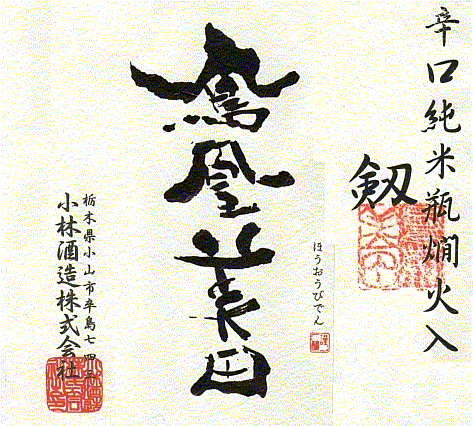 辛口純米瓶燗火入
劔
鳳凰美田
ほうおうびでん
栃木県小山市卒島七四三
小林酒造株式会社